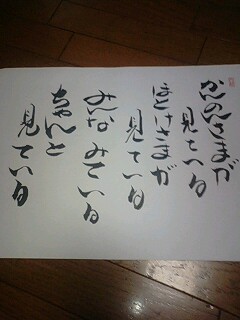 かんのんさまが
見ている
ほとけさまが
見ている
みんな みている
ちゃんと
見ている